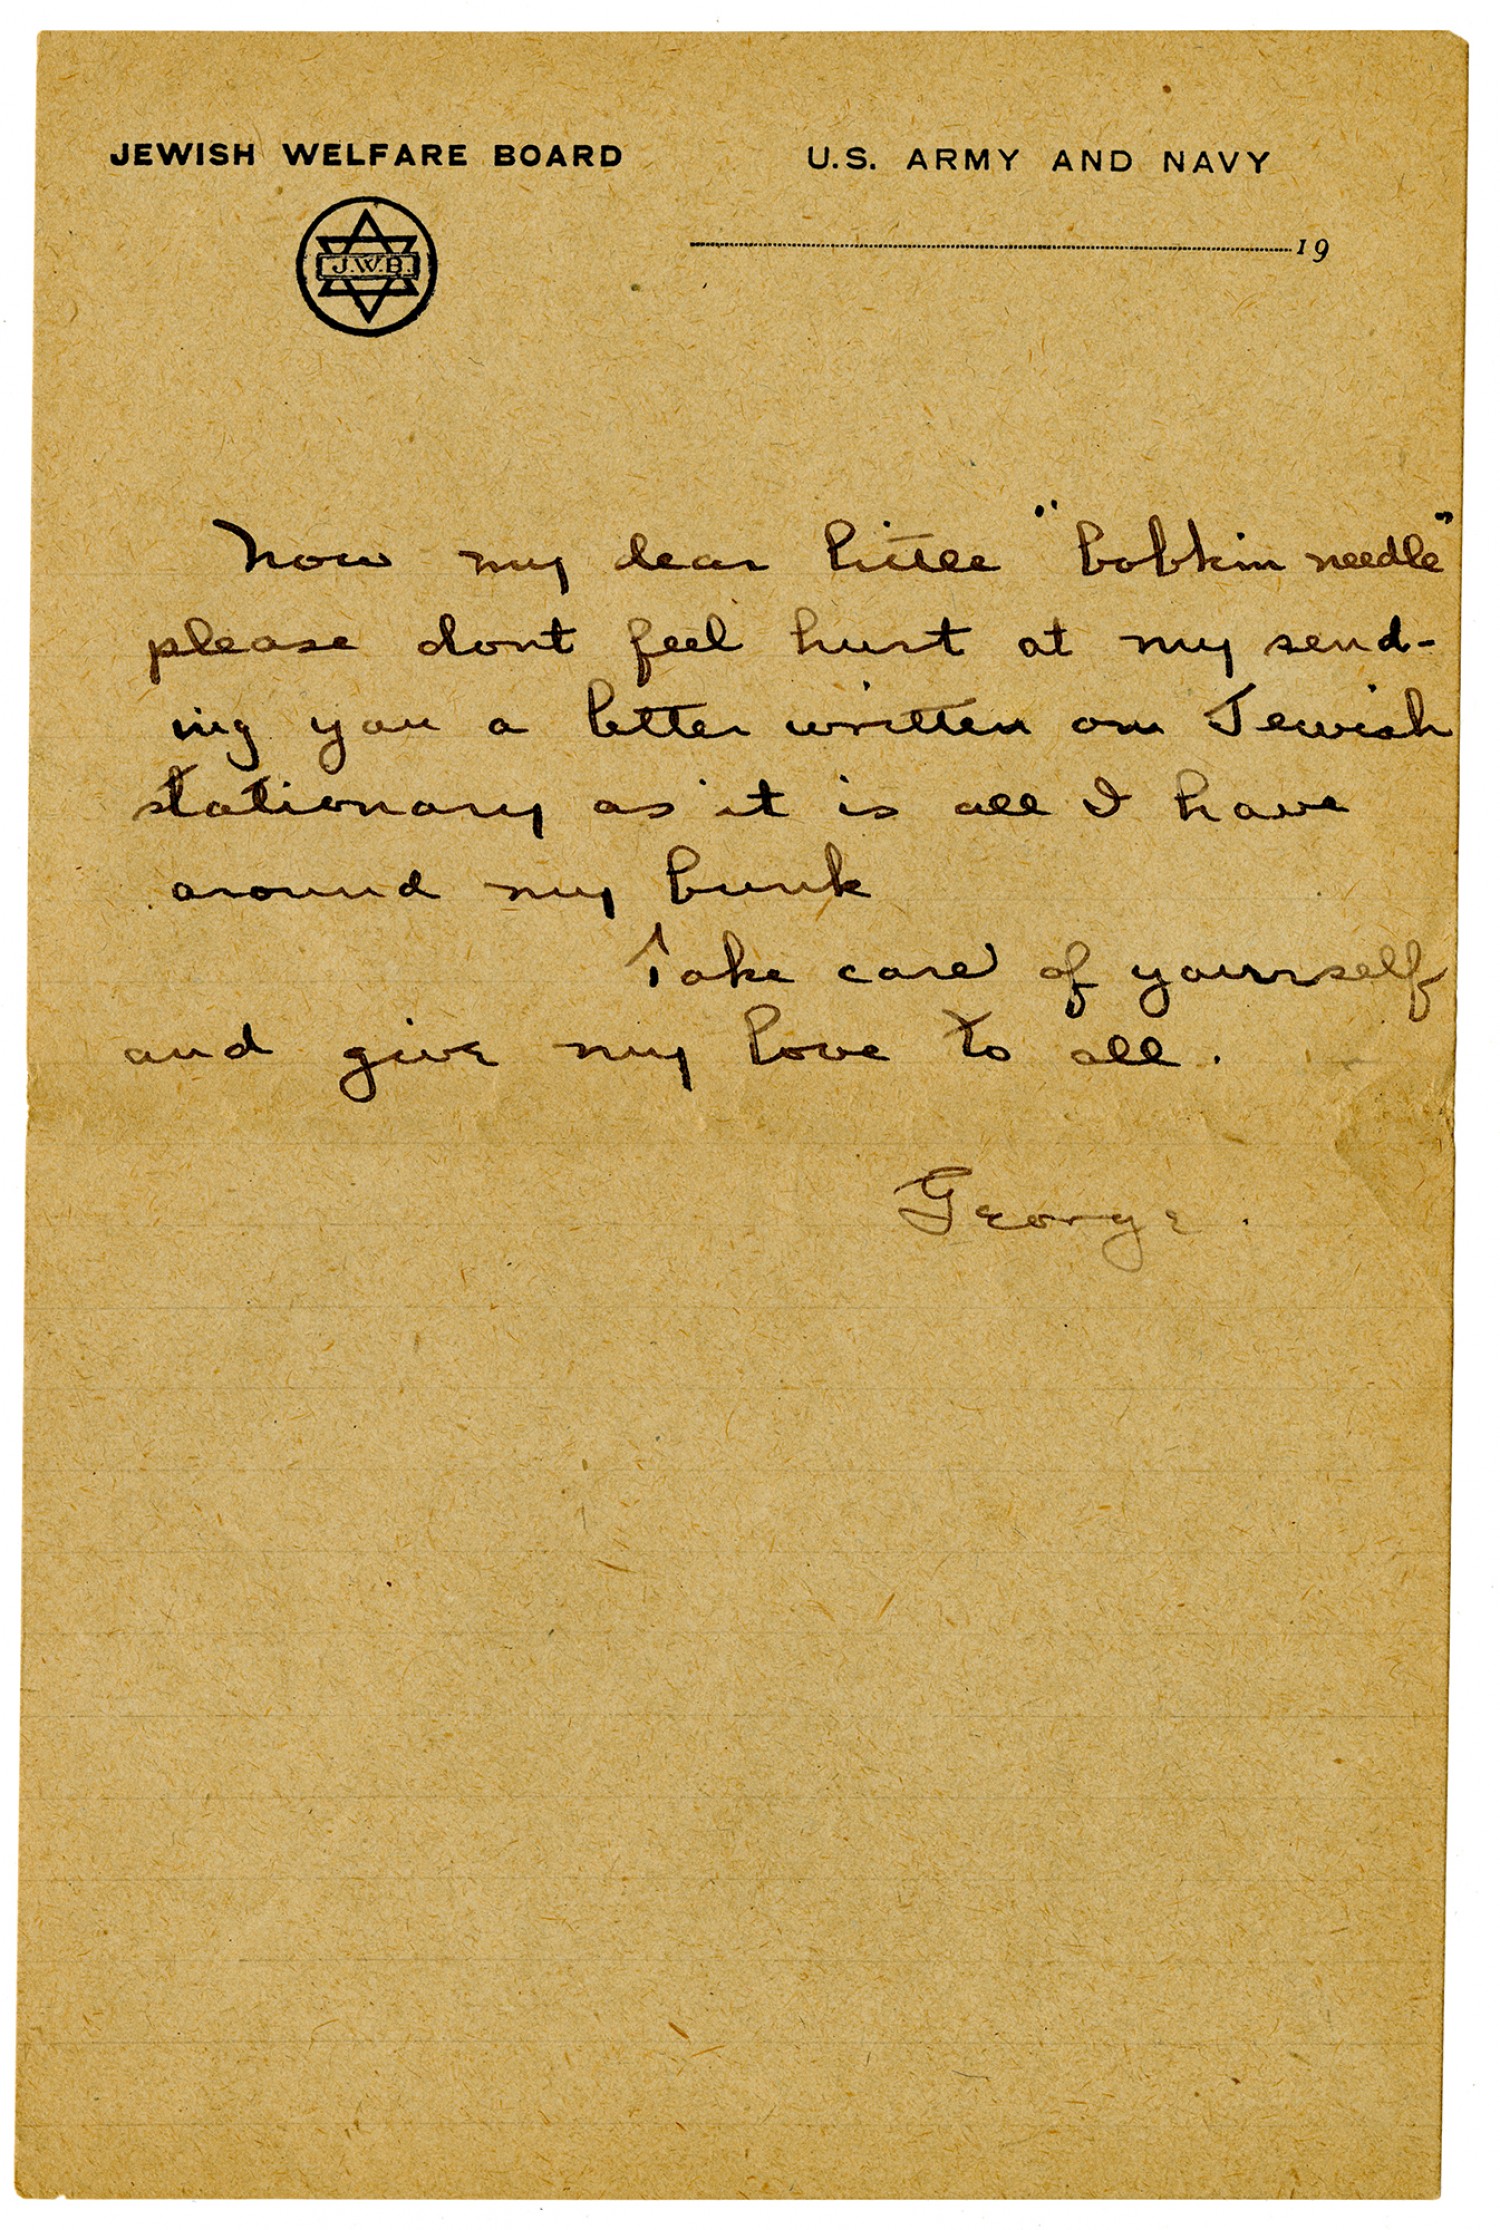 JEWISH WELFARE BOARD
U.S. ARMY AND NAVY
J.W.B.
19
Now my dear little "bobkin needle"
please dont feel hurt at my send-
ing you a letter written on Jewish
stationary as it is all I have
around my bunk
Take care of yourself
and give my love to all.
George.